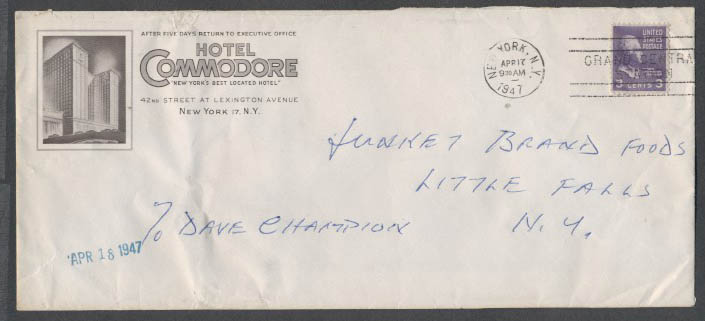 AFTER FIVE DAYS RETURN TO EXECUTIVE OFFICE
HOTEL
COMMODORE
"NEW YORK'S BEST LOCATED HOTEL"
42ND STREET AT LEXINGTON AVENUE
NEW YORK 17, N.Y.
NEW YORK, N.Y.
APR 17
9 AM
1947
GRAND CENTRAL
UNITED
STATES
POSTAGE
3 CENTS 3
JUNKET BRAND FOODS
LITTLE FALLS
% DAVE CHAMPION N.Y.
APR 18 1947